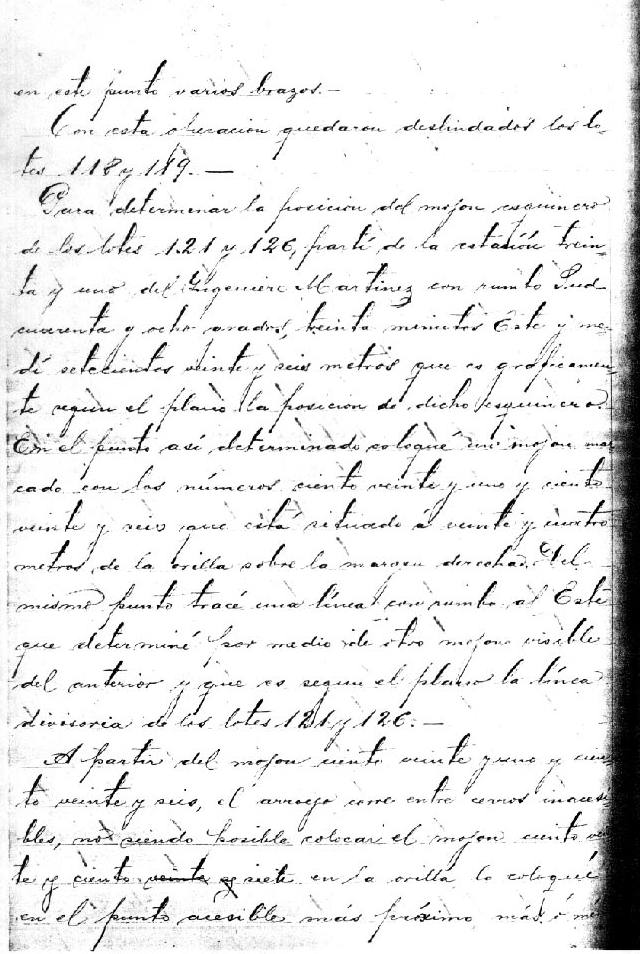 en este punto varios brazos.—
Con esta operación quedaron deslindados los lo-
tes 118 y 119.—
Para determinar la posición del mojon esquinero
de los lotes 121 y 126, partí de la estación trein-
ta y uno del Ingeniero Martinez con rumbo Sud
cuarenta y ocho grados, treinta minutos Este y me-
dí setecientos veinte y seis metros que es graficamen-
te segun el plano la posición de dicho esquinero.
En el punto así determinado coloqué un mojon mar
cado con los números ciento veinte y uno y ciento
veinte y seis que está situado á veinte y cuatro
metros de la orilla sobre la margen derecha. Del
mismo punto tracé una línea con rumbo al Este
que determiné por medio de otro mojon visible
del anterior y que es segun el plano la línea
divisoria de los lotes 121 y 126.—
A partir del mojon ciento veinte y uno y cien
to veinte y seis, el arroyo corre entre cerros inacesi
bles, no siendo posible colocar el mojon ciento
te y ciento veinte y siete en la orilla lo coloqué
en el punto acesible más próximo más ó me